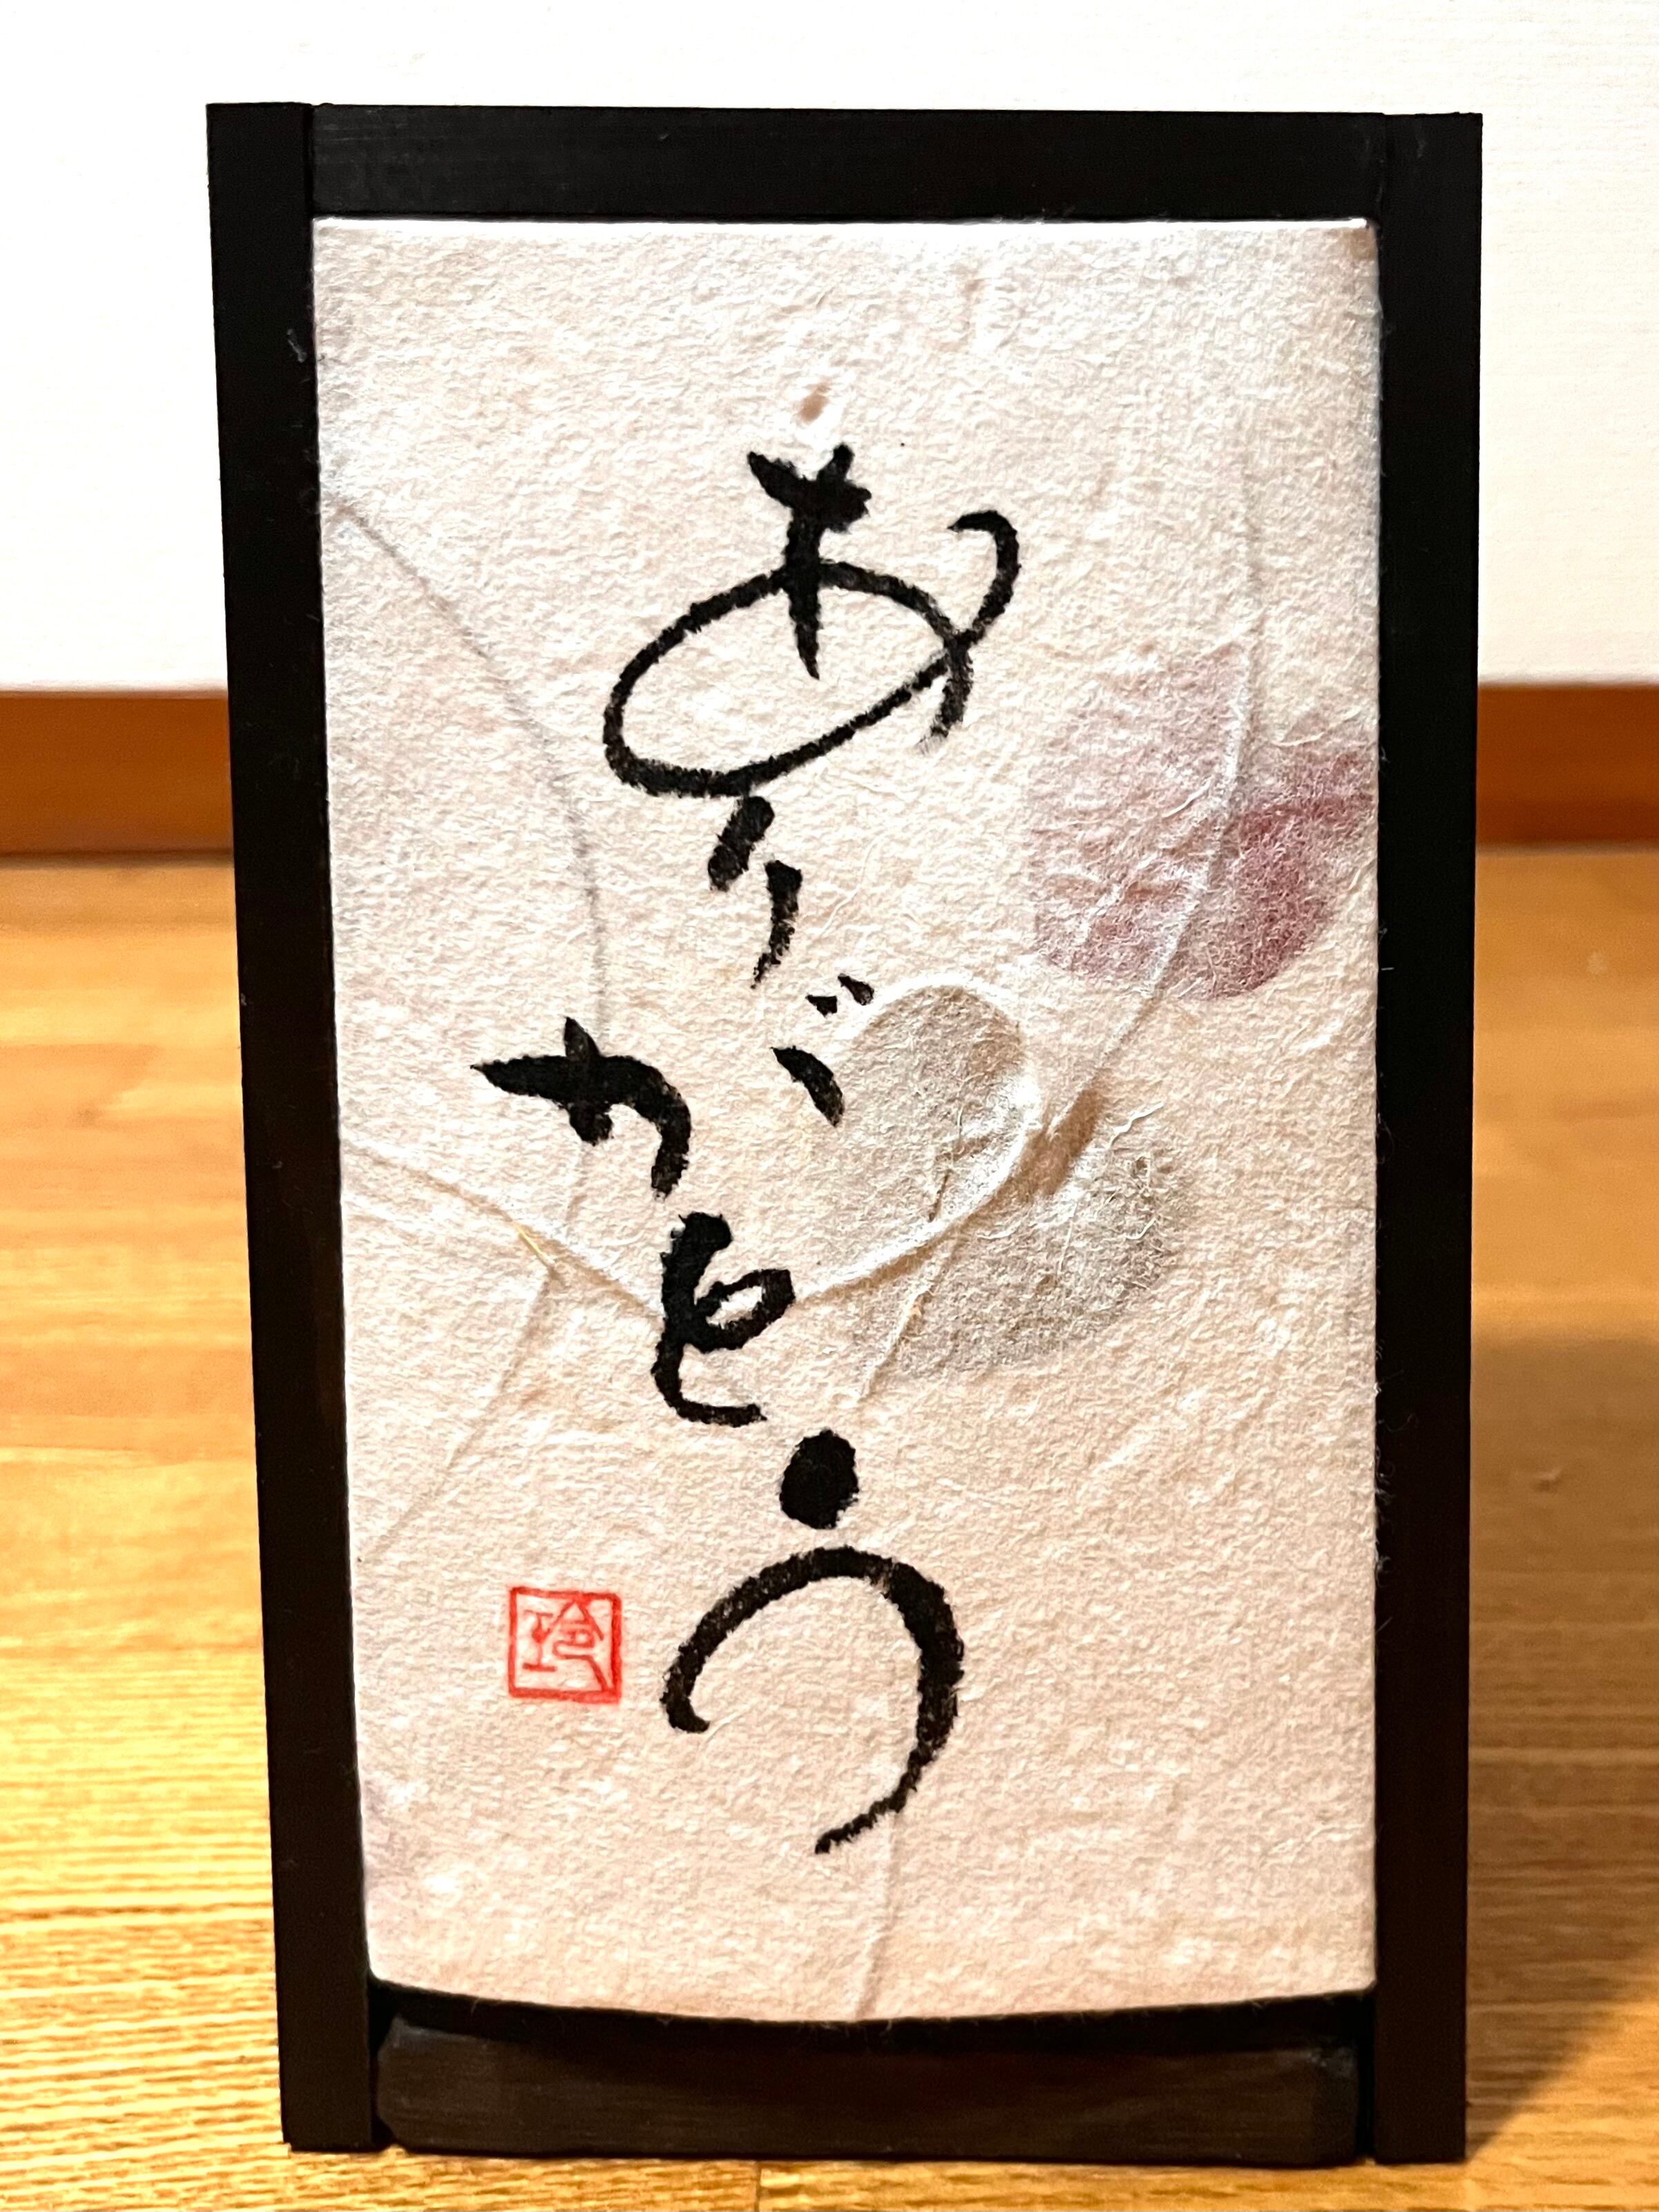 ありがとう
玲